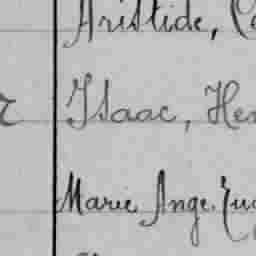 Aristide,
Isaac, Hen
Marie Ange.